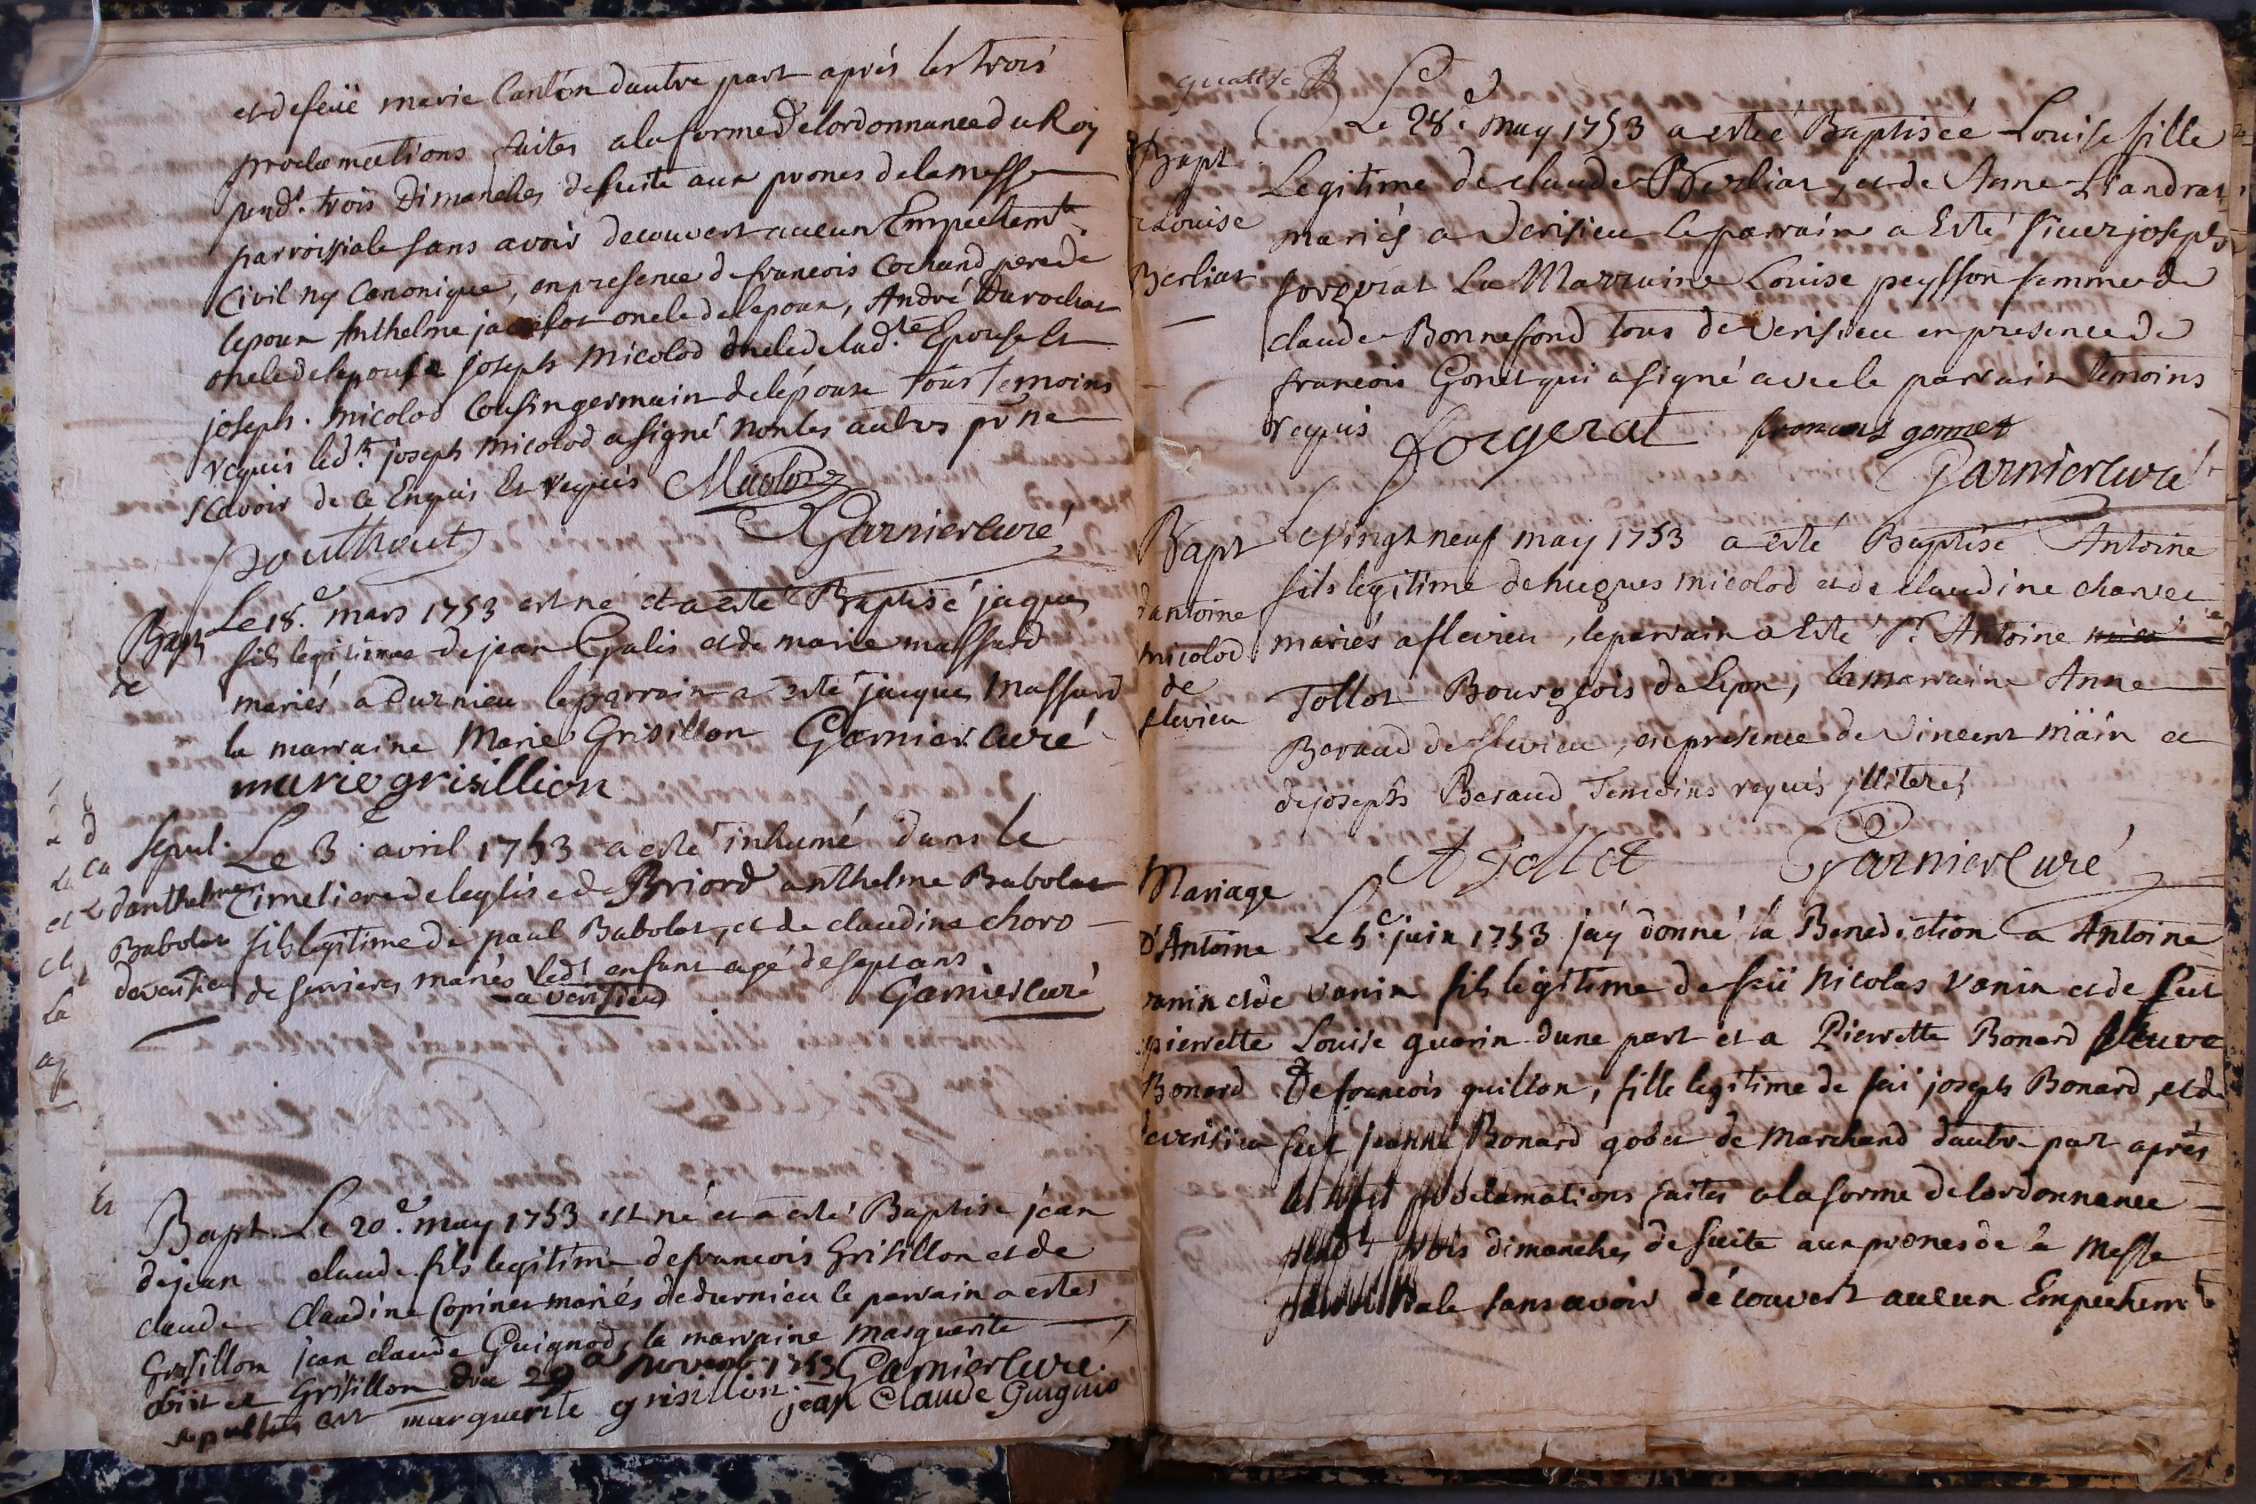 et de feüe marie Canton dautre part aprés les trois
proclamations faites a la forme de lordonnance du Roy
pendt. trois Dimanches de suite aux prones de la messe
parroissiale sans avoir decouvert aucun Empechemt.
Civil ny Canonique, en presence de francois Cochand pere de
lepoux Anthelme jacelot oncle de lepoux, André Durochat
oncle de lepouse joseph micolod oncle de lad.te Epouse Et
joseph. micolod Cousin germain de lépouse tous temoins
requis led.t joseph micolod a signé non les autres pr ne
scavoir de ce Enquis Et requis Micolod
Garnier Curé
Bapt
de
Le 18.e mars 1753 est né et a esté Baptisé jaques
fils legitime de jean Galis et de marie massard
mariés a Durnieu le parrain a esté jacques Massard
la marraine Marie Grisillon Garnier Curé
marie grisillion
Sepul.
danthelme
Babolat
de verisieu
Le 3. avril 1753 a esté inhumé dans le
Cimetiere de leglise de Briord anthelme Babolat
fils legitime de paul Babolat, et de claudine choro
de serrieres mariés ledt enfant agé de sept ans
a verisieu Garnier Curé
Bapt
de jean
claude
Grisillon
obiit et
sepultus est
Le 20.e may 1753 est né et a esté Baptisé jean
claude fils legitime de francois Grisillon et de
Claudine Copinet mariés de durnieu le parrain a esté
jean claude Guignod, la marraine marguerite
Grisillon die 29a novemb. 1753 Garnier Curé.
marguerite grisillion jean Claude Guignio
quattre
Bapt
Louise
Berliat
Le 28.e may 1753 a esteé Baptiseé Louise fille
Legitime de claude Berliat, et de Anne Liandrat
mariés a Verisieu le parrain a Esté sieur joseph
sorgerat La Marraine Louise peysson femme de
claude Bonnefond tous de verisieu en presence de
francois Gonet qui a signé avec le parrain temoins
requis Sorgerat francois gonnet
Garnier Curé
Bapt
dantoine
micolod
de
flevieu
Le vingt neuf may 1753 a esté Baptisé Antoine
fils legitime de hugues micolod et de claudine charvet
mariés a flevieu, le parrain a Esté Sr. Antoine
Tollot Bourgeois de Lyon, la marraine Anne
Beraud de flevieu, en presence de Vincent mäin et
de joseph Beraud Temoins requis jlliterés
A Tollot Garnier Curé
Mariage
d'Antoine
vanin et de
pierrette
Bonard
de verisieu
Le 5.e juin 1753 jay donné la Benediction a Antoine
vanin fils legitime de feü Nicolas vanin et de feüe
Louise guerin dune part et a Pierrette Bonard veuve
De francois guillon, fille legitime de feü joseph Bonard, et de
feüe jeanne Bonard gobet de Marchand dautre part aprés
les trois proclamations faites a la forme de lordonnance
pendt trois dimanches de suite aux prones de la Messe
parroissiale sans avoir découvert aucun Empechemt